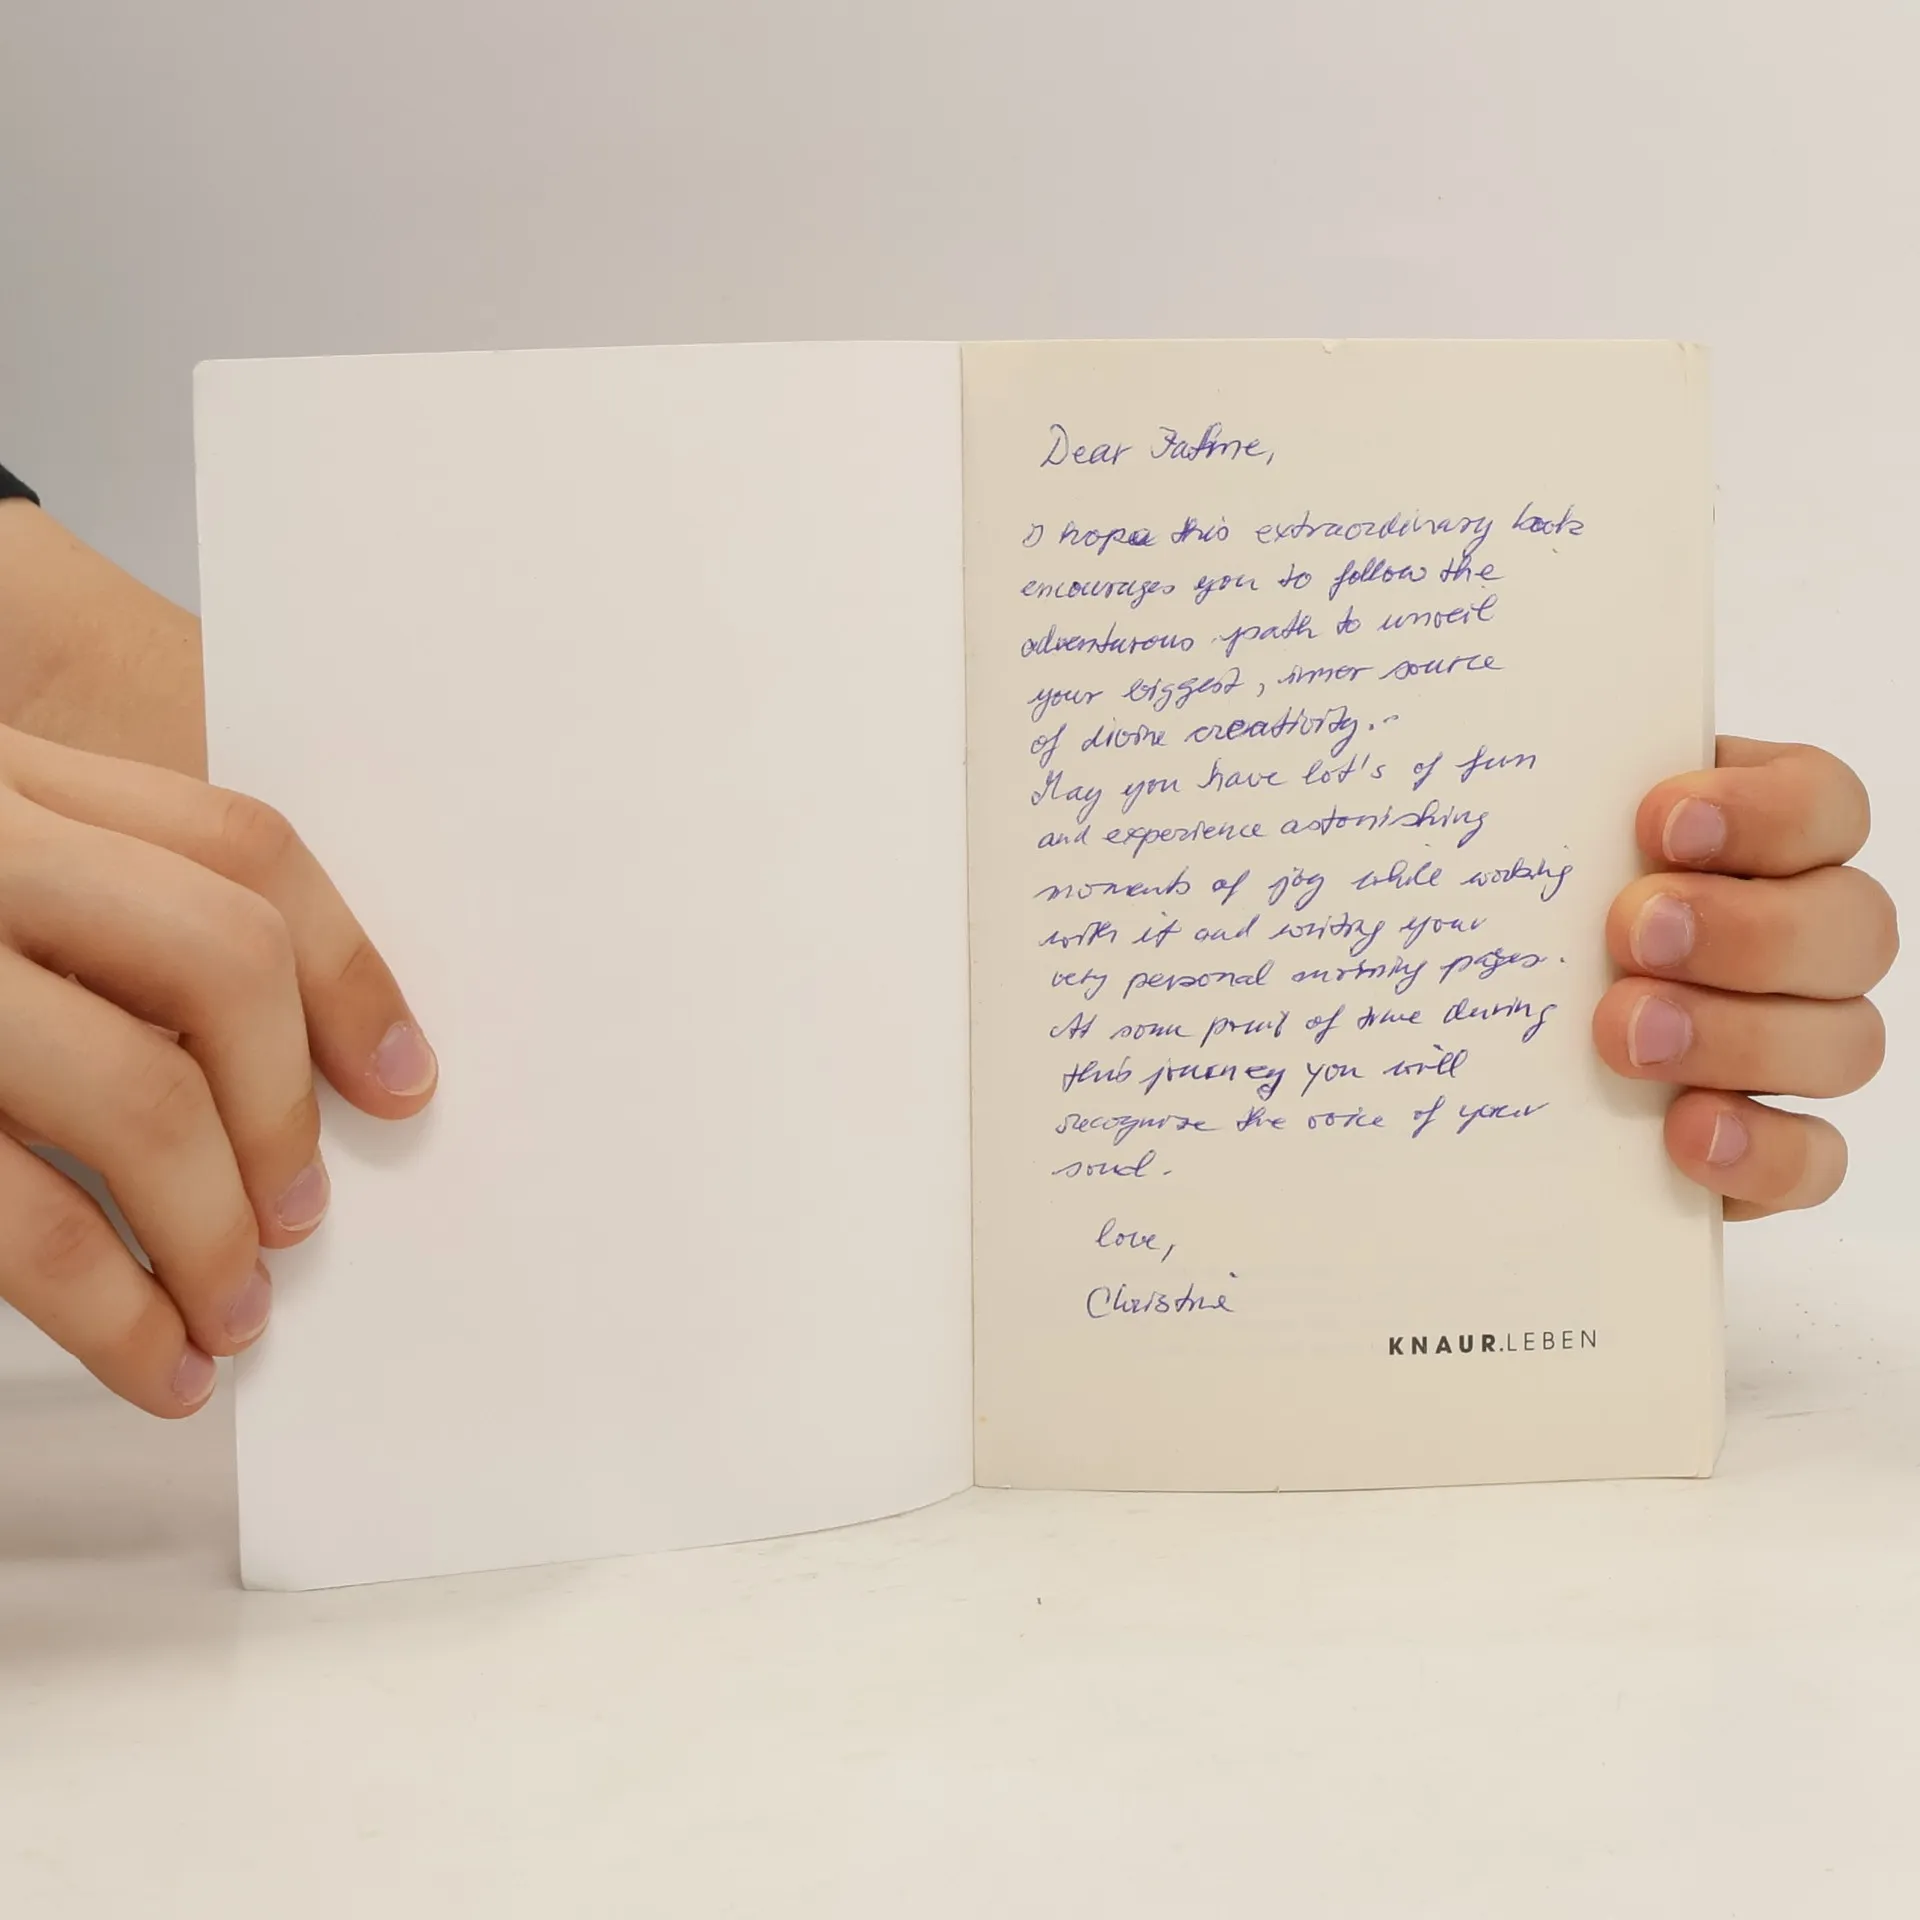 Dear Fatme,
I hope this extraordinary book
encourages you to follow the
adventurous path to unveil
your biggest, inner source
of divine creativity.
May you have lot's of fun
and experience astonishing
moments of joy while working
with it and writing your
very personal morning pages.
At some point of time during
this journey you will
recognize the voice of your
soul.
love,
Christine
KNAUR.LEBEN